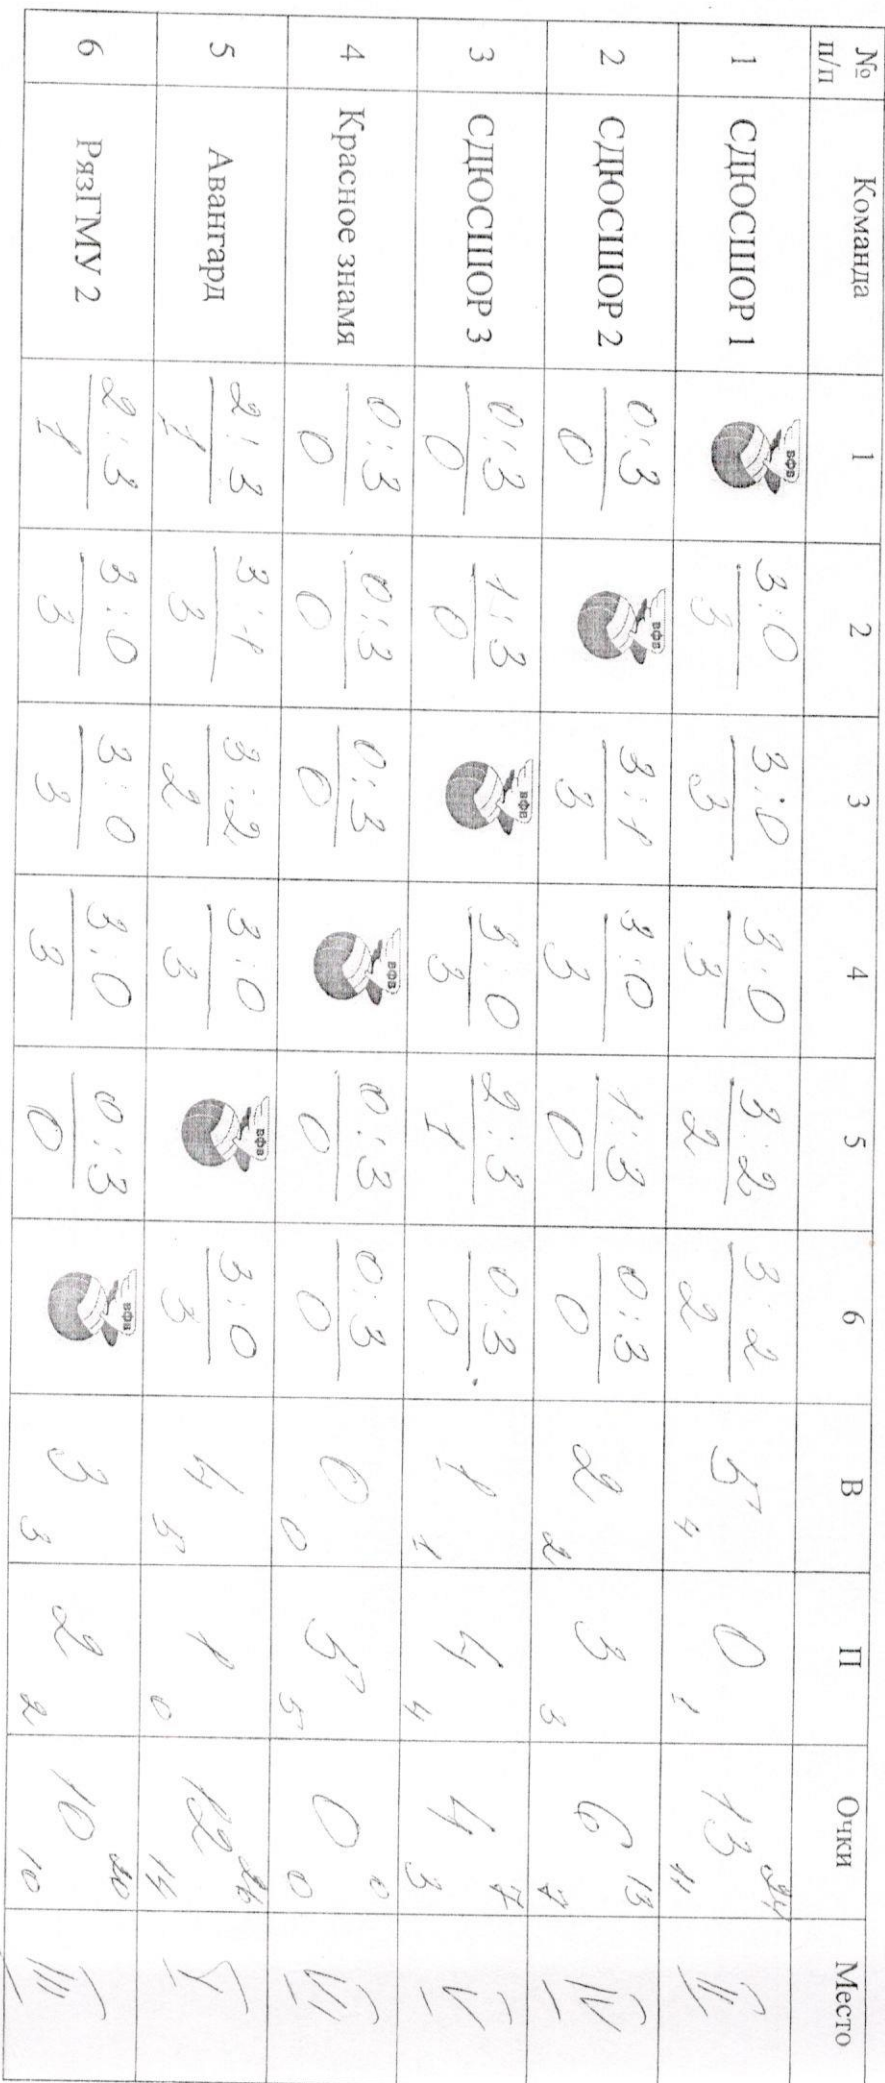 № п/п Команда 1 2 3 4 5 6 В П Очки Место
1 СДЮСШОР 1 ВФВ 3:0 3 3:0 3 3:0 3 3:2 2 3:2 2 5 4 0 1 13 24 11 II
2 СДЮСШОР 2 0:3 0 ВФВ 3:1 3 3:0 3 1:3 0 0:3 0 2 2 3 3 6 13 7 IV
3 СДЮСШОР 3 0:3 0 1:3 0 ВФВ 3:0 3 2:3 1 0:3 0 1 1 4 4 4 7 3 V
4 Красное знамя 0:3 0 0:3 0 0:3 0 ВФВ 0:3 0 0:3 0 0 0 5 5 0 0 0 VI
5 Авангард 2:3 1 3:1 3 3:2 2 3:0 3 ВФВ 3:0 3 4 5 1 0 12 26 14 I
6 РязГМУ 2 2:3 1 3:0 3 3:0 3 3:0 3 0:3 0 ВФВ 3 3 2 2 10 20 10 III